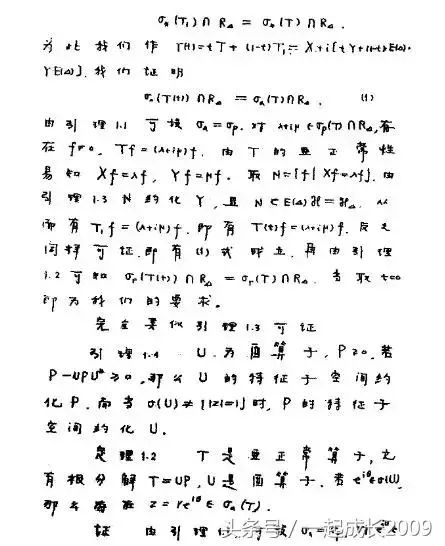 σₐ(T₁)∩R_Δ = σₐ(T)∩R_Δ.
为此我们作 T(t)=tT+(1-t)T₁= X+i[tY+(1-t)E(Δ)·
YE(Δ)]. 我们证明
σₐ(T(t))∩R_Δ = σₐ(T)∩R_Δ. (1)
由引理1.1可换 σₐ=σₚ. 对 λ+iμ∈σₚ(T)∩R_Δ, 存
在 f≠0, Tf=(λ+iμ)f. 由T的亚正常性
易知 Xf=λf, Yf=μf. 取 N={f|Xf=λf}. 由
引理1.3 N约化Y, 且 N⊂E(Δ)ℋ=ℋ_Δ. 从
而有 T₁f=(λ+iμ)f. 即有 T(t)f=(λ+iμ)f. 反之
同样可证. 即有(1)式成立. 再由引理
1.2可知 σᵣ(T(t))∩R_Δ = σᵣ(T)∩R_Δ. 当取 t=0
即为我们的要求.
完全类似引理1.3可证
引理1.4 U为酉算子, P≥0, 若
P-UPU*≥0, 那么U的特征子空间约
化P. 而当 σ(U)≠{|z|=1}时, P的特征子
空间约化U.
定理1.2 T是亚正常算子, 它
有极分解 T=UP, U是酉算子. 若 e^{iθ}∈σ(U),
那么有 z=re^{iθ}∈σₐ(T).
证 由引理
头条号/一起成长2009